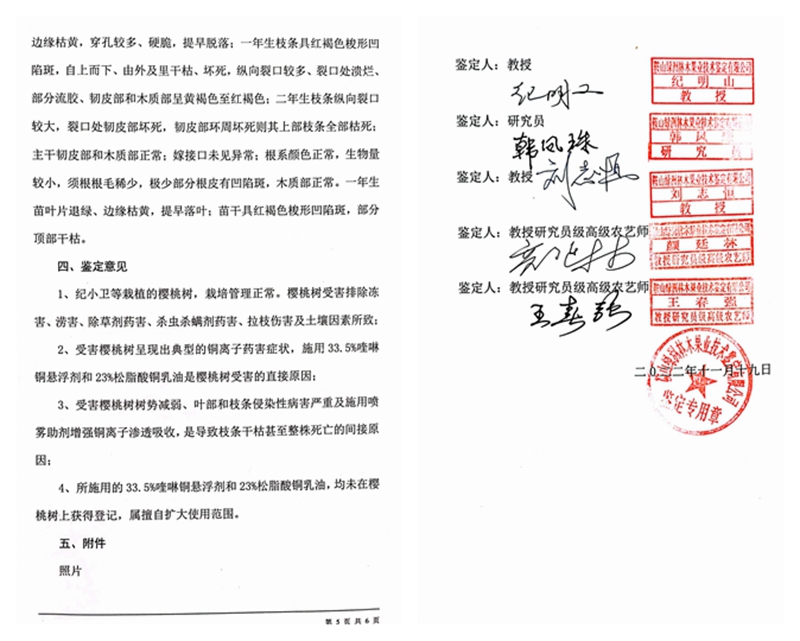 边缘枯黄，穿孔较多、硬脆，提早脱落；一年生枝条具红褐色梭形凹
陷斑，自上而下、由外及里干枯、坏死，纵向裂口较多、裂口处溃烂、
部分流胶、韧皮部和木质部呈黄褐色至红褐色；二年生枝条纵向裂口
较大，裂口处韧皮部坏死，韧皮部环周坏死则其上部枝条全部枯死；
主干韧皮部和木质部正常；嫁接口未见异常；根系颜色正常，生物量
较小，须根根毛稀少，极少部分根皮有凹陷斑，木质部正常。一年生
苗叶片退绿、边缘枯黄，提早落叶；苗干具红褐色梭形凹陷斑，部分
顶部干枯。
四、鉴定意见
1、纪小卫等栽植的樱桃树，栽培管理正常。樱桃树受害排除冻
害、涝害、除草剂药害、杀虫杀螨剂药害、拉枝伤害及土壤因素所致；
2、受害樱桃树呈现出典型的铜离子药害症状，施用 33.5%喹啉
铜悬浮剂和 23%松脂酸铜乳油是樱桃树受害的直接原因；
3、受害樱桃树树势减弱、叶部和枝条侵染性病害严重及施用喷
雾助剂增强铜离子渗透吸收，是导致枝条干枯甚至整株死亡的间接原
因；
4、所施用的 33.5%喹啉铜悬浮剂和 23%松脂酸铜乳油，均未在樱
桃树上获得登记，属擅自扩大使用范围。
五、附件
照片
第 5 页 共 6 页
鉴定人：教授
纪明山
教 授
鉴定人：研究员
韩凤珠
韩凤
研 究 员
鉴定人：教授
刘志恒
教 授
鉴定人：教授研究员级高级农艺师
颜廷林
教授研究员级高级农艺师
鉴定人：教授研究员级高级农艺师
王春强
王 春 强
教授研究员级高级农艺师
二〇二二年十一月十九日
鉴定专用章